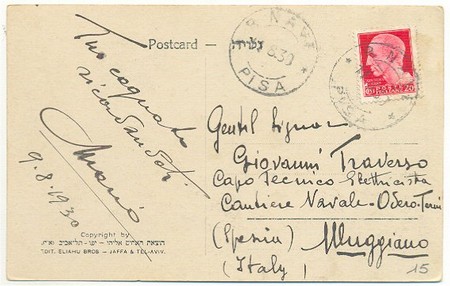 Postcard —
R. NAVE
8.30
PISA
Tuo cognato
ricordandoti
Mario
9.8.1930
Gentil Signor
Giovanni Traverso
Capo Tecnico Elettricista
Cantiere Navale - Odero-Terni
(Spezia) Muggiano
(Italy)
15
Copyright by
הוצאת האחים אליהו - יפו - תל-אביב
EDIT. ELIAHU BROS - JAFFA & TEL-AVIV.